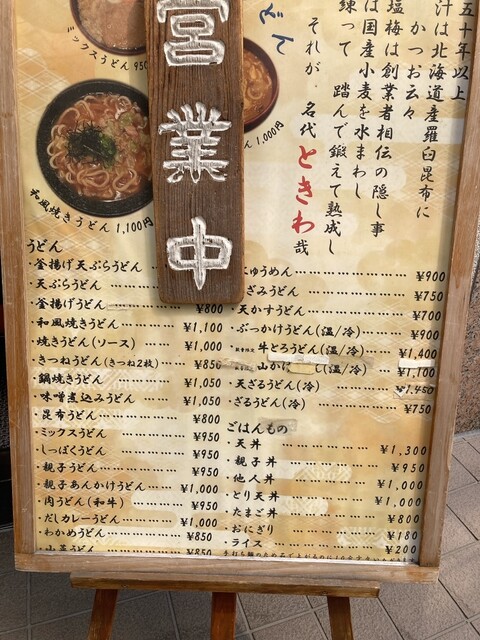 五十年以上
汁は北海道産羅臼昆布に
かつお云々
塩梅は創業者相伝の隠し事
は国産小麦を水まわし
練って 踏んで鍛えて熟成し
それが 名代 ときわ 哉
営業中
ミックスうどん 950
1,000円
和風焼きうどん 1,100円
うどん
・釜揚げ天ぷらうどん
・天ぷらうどん
・釜揚げうどん ¥800
・和風焼きうどん ¥1,100
・焼きうどん(ソース) ¥1,000
・きつねうどん(きつね2枚) ¥850
・鍋焼きうどん ¥1,050
・味噌煮込みうどん ¥1,050
・昆布うどん ¥800
・ミックスうどん ¥950
・しっぽくうどん ¥950
・親子うどん ¥950
・親子あんかけうどん ¥1,000
・肉うどん(和牛) ¥950
・だしカレーうどん ¥1,000
・わかめうどん ¥850
・山菜うどん ¥850
にゅうめん ¥900
きざみうどん ¥750
・天かすうどん ¥700
・ぶっかけうどん(温/冷) ¥900
牛とろうどん(温/冷) ¥1,400
山か (温/冷) ¥1,100
・天ざるうどん(冷) ¥1,450
・ざるうどん(冷) ¥750
ごはんもの
・天丼 ¥1,300
・親子丼 ¥950
・他人丼 ¥1,000
・とり天丼 ¥1,000
・たまご丼 ¥800
・おにぎり ¥180
・ライス ¥200